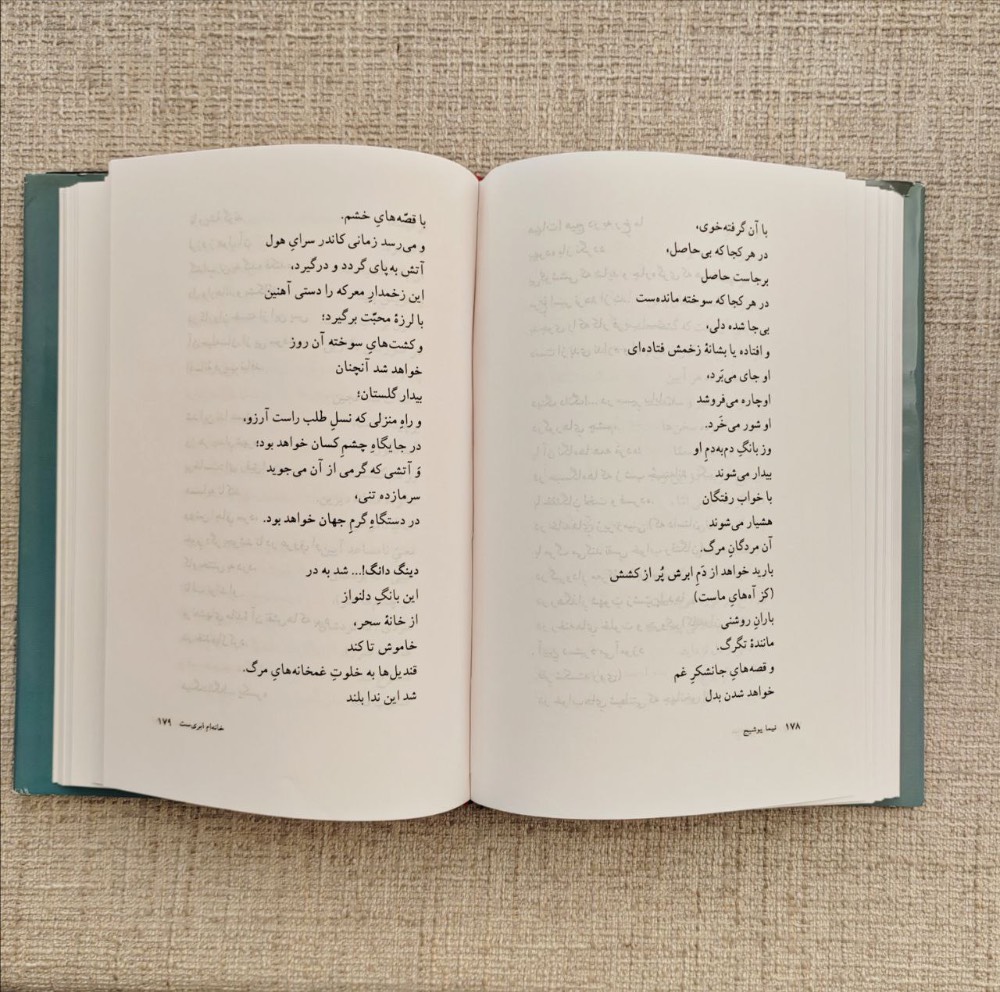 با آن گرفته‌خوی،
در هر کجا که بی‌حاصل،
برجاست حاصل
در هر کجا که سوخته مانده‌ست
بی‌جا شده دلی،
و افتاده یا بشانهٔ زخمش فتاده‌ای
او جای می‌بَرد،
او چاره می‌فروشد
او شور می‌خَرد.
وز بانگِ دم‌به‌دمِ او
بیدار می‌شوند
با خواب رفتگان
هشیار می‌شوند
آن مردگانِ مرگ.
بارید خواهد از دَمِ ابرش پُر از کشش
(کز آه‌هایِ ماست)
بارانِ روشنی
مانندهٔ تگرگ.
و قصه‌هایِ جانشکرِ غم
خواهد شدن بدل
۱۷۸ نیما یوشیج
با قصّه‌هایِ خشم.
و می‌رسد زمانی کاندر سرایِ هول
آتش به‌پای گردد و درگیرد،
این زخمدارِ معرکه را دستی آهنین
با لرزهٔ محبّت برگیرد؛
و کشت‌هایِ سوخته آن روز
خواهد شد آنچنان
بیدار گلستان؛
و راهِ منزلی که نسلِ طلب راست آرزو،
در جایگاهِ چشمِ کسان خواهد بود؛
وَ آتشی که گرمی از آن می‌جوید
سرمازده تنی،
در دستگاهِ گرمِ جهان خواهد بود.
دینگ دانگ!... شد به در
این بانگِ دلنواز
از خانهٔ سحر،
خاموش تا کند
قندیل‌ها به خلوتِ غمخانه‌هایِ مرگ.
شد این ندا بلند
خانه‌ام ابری‌ست ۱۷۹